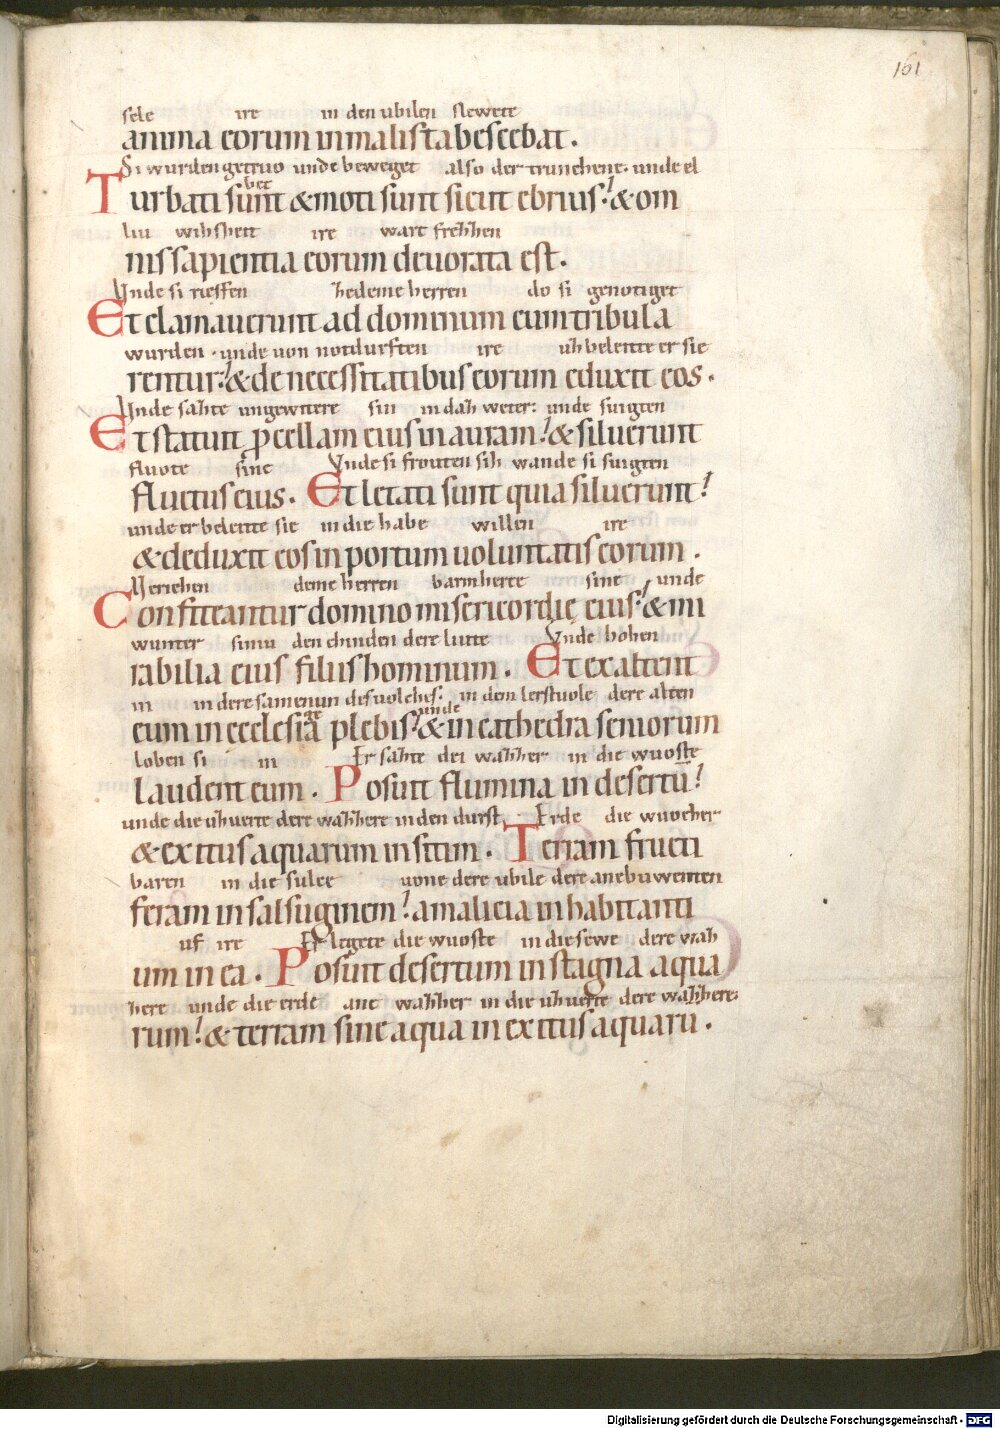 161
sele ire in den ubilen slewete
anima eorum in malis tabescebat.
Si wurden getruo unde beweget also der trunchene. unde el
bet
Turbati sunt & moti sunt sicut ebrius: & om
liu wihsheit ire wart frehhen
nis sapientia eorum deuorata est.
Vnde si rieffen hedeme herren do si genotiget
Et clamauerunt ad dominum cum tribula
wurden. unde uon notdurften ire uhbeleitte er sie
rentur: & de necessitatibus eorum eduxit eos.
Vnde sahte ungewitere sin in dah weter: unde suigten
Et statuit ꝓcellam eius in auram: & siluerunt
fluote sine Vnde si frouten sih wande si suigten
fluctus eius. Et letati sunt quia siluerunt:
unde er beleitte sie in die habe willen ire
& deduxit eos in portum uoluntatis eorum.
Veriehen deme herren barmherte sine unde
Confiteantur domino misericordię eius: & mi
wunter sinu den chinden dere lutte
rabilia eius filiis hominum. Et exaltent
Vnde hohen
in in dere samenun des uolches: in dem lerstuole dere alten
ge unde
eum in ecclesia plebis: & in cathedra seniorum
loben si in Er sahte dei wahher in die wuoste
laudent eum. Posuit flumina in desertū:
unde die uhuerte dere wahhere in den durst. Erde die wuocher
& exitus aquarum in sitim. Terram fructi
baren in die sulce uone dere ubile dere anebuwenten
feram in salsuginem: a malicia inhabitanti
uf ire Er legete die wuoste in die sewe dere wah
um in ea. Posuit desertum in stagna aqua
here unde die erde ane wahher in die uhuerte dere wahhere:
rum: & terram sine aqua in exitus aquarū.
Digitalisierung gefördert durch die Deutsche Forschungsgemeinschaft - DFG